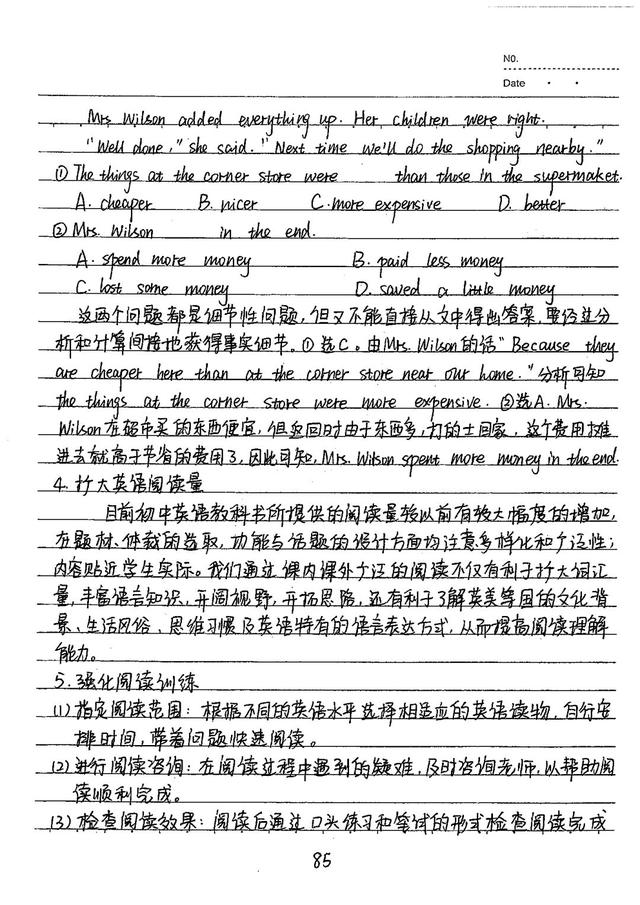 NO.
Date · ·
Mrs Wilson added everything up. Her children were right.
"Well done," she said. "Next time we'll do the shopping nearby."
① The things at the corner store were than those in the supermaket.
A. cheaper B. nicer C. more expensive D. better
② Mrs. Wilson in the end.
A. spend more money B. paid less money
C. lost some money D. saved a little money
这两个问题都是细节性问题,但又不能直接从文中得出答案,要经过分
析和计算间接地获得事实细节。①选C。由Mrs. Wilson的话"Because they
are cheaper here than at the corner store near our home."分析可知
the things at the corner store were more expensive. ②选A. Mrs.
Wilson在超市买的东西便宜,但返回时由于东西多,打的士回家,这个费用摊
进去就高于节省的费用了,因此可知,Mrs. Wilson spent more money in the end.
4. 扩大英语阅读量
目前初中英语教科书所提供的阅读量较以前有较大幅度的增加,
在题材、体裁的选取,功能与话题的设计方面均注意多样化和广泛性;
内容贴近学生实际。我们通过课内课外广泛的阅读不仅有利于扩大词汇
量,丰富语言知识,开阔视野,开拓思路,还有利于了解英美等国的文化背
景、生活风俗、思维习惯及英语特有的语言表达方式,从而提高阅读理解
能力。
5. 强化阅读训练
(1) 指定阅读范围:根据不同的英语水平选择相适应的英语读物,自行安
排时间,带着问题快速阅读。
(2) 进行阅读咨询:在阅读过程中遇到的疑难,及时咨询老师,以帮助阅
读顺利完成。
(3) 检查阅读效果:阅读后通过口头练习和笔试的形式检查阅读完成
85